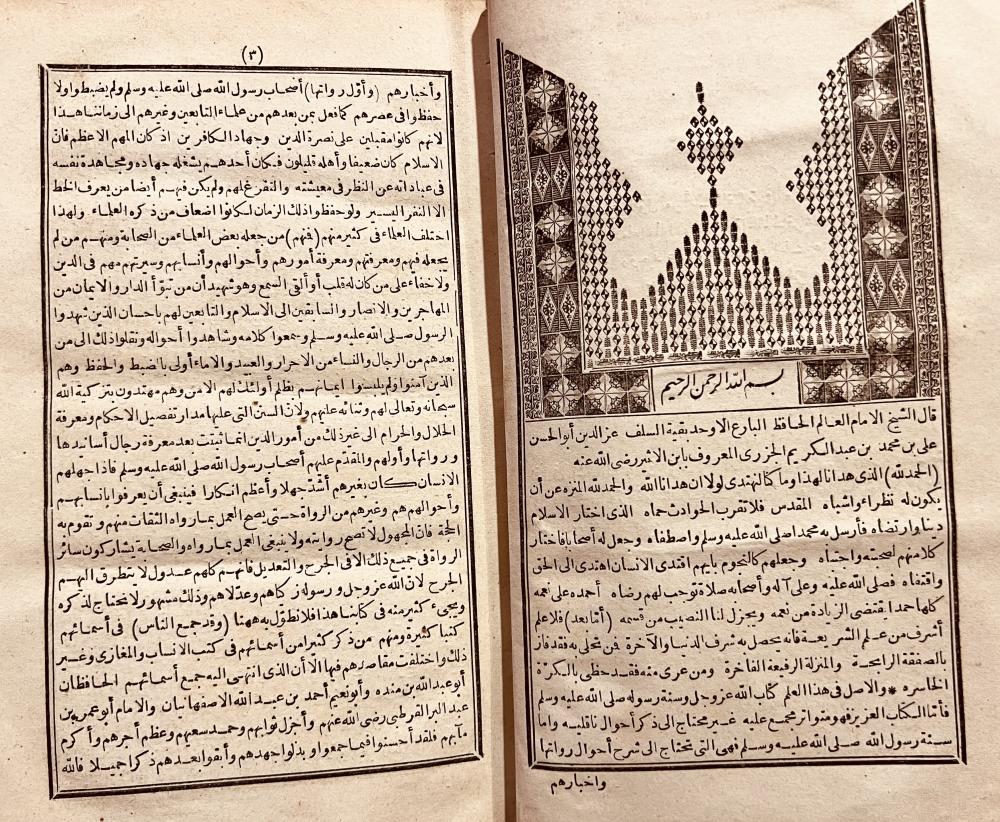 بسم الله الرحمن الرحيم
قال الشيخ الامام العالم الحافظ البارع الاوحد بقية السلف عز الدين أبو الحسن
على بن محمد بن عبد الكريم الجزرى المعروف بابن الاثير رضى الله عنه
(الحمد لله) الذى هدانا لهذا وما كنا لنهتدى لولا ان هدانا الله والحمد لله المنزه عن أن
يكون له نظراء واشباه المقدس فلا تقرب الحوادث حماه الذى اختار الاسلام
دينا وارتضاه فأرسل به محمدا صلى الله عليه وسلم واصطفاه وجعل له أصحابا فاختار
كلامنهم لصحبته واجتباه وجعلهم كالنجوم بايهم اقتدى الانسان اهتدى الى الحق
واقتفاه فصلى الله عليه وعلى آله وأصحابه صلاة توجب لهم رضاه أحمده على نعمه
كلها حمدا يقتضى الزيادة من نعمه ويجزل لنا النصيب من قسمه (أما بعد) فلا علم
أشرف من علم الشريعة فانه يحصل به شرف الدنيا والآخرة فمن تحلى به فقد فاز
بالصفقة الرابحة والمنزلة الرفيعة الفاخرة ومن عرى منه فقد حظى بالكرّة
الخاسره * والاصل فى هذا العلم كتاب الله عز وجل وسنة رسوله صلى الله عليه وسلم
فأما الكتاب العزيز فهو متواتر مجمع عليه غير محتاج الى ذكر أحوال ناقليه واما
سنة رسول الله صلى الله عليه وسلم فهى التى تحتاج الى شرح أحوال رواتها
واخبارهم
(٣)
وأخبارهم (وأول رواتها) أصحاب رسول الله صلى الله عليه وسلم ولم يضبطوا ولا
حفظوا فى عصرهم كما فعل بمن بعدهم من علماء التابعين وغيرهم الى زماننا هذا
لانهم كانوا مقبلين على نصرة الدين وجهاد الكافرين اذ كان المهم الاعظم فان
الاسلام كان ضعيفا وأهله قليلون فكان أحدهم يشغله جهاده ومجاهدة نفسه
فى عباداته عن النظر فى معيشته والتفرغ لهم ولم يكن فيهم أيضا من يعرف الخط
الا النفر اليسير ولو حفظوا ذلك الزمان لكانوا اضعاف من ذكره العلماء ولهذا
اختلف العلماء فى كثير منهم (فمنهم) من جعله بعض العلماء من الصحابة ومنهم من لم
يجعله فيهم ومعرفتهم ومعرفة أمورهم وأحوالهم وأنسابهم وسيرتهم مهم فى الدين
ولا خفاء على من كان له قلب أو ألقى السمع وهو شهيد أن من تبوّأ الدار والايمان من
المهاجرين والانصار والسابقين الى الاسلام والتابعين لهم باحسان الذين شهدوا
الرسول صلى الله عليه وسلم وسمعوا كلامه وشاهدوا أحواله ونقلوا ذلك الى من
بعدهم من الرجال والنساء من الاحرار والعبيد والاماء أولى بالضبط والحفظ وهم
الذين آمنوا ولم يلبسوا ايمانهم بظلم أولئك لهم الامن وهم مهتدون بتزكية الله
سبحانه وتعالى لهم وثنائه عليهم ولانّ السنن التى عليها مدار تفصيل الاحكام ومعرفة
الحلال والحرام الى غير ذلك من أمور الدين انما ثبتت بعد معرفة رجال أسانيدها
ورواتها وأولهم والمقدّم عليهم أصحاب رسول الله صلى الله عليه وسلم فاذا جهلهم
الانسان كان بغيرهم أشدّ جهلا وأعظم انكارا فينبغى أن يعرفوا بانسابهم
وأحوالهم هم وغيرهم من الرواة حتى يصح العمل بما رواه الثقات منهم وتقوم به
الحجة فان المجهول لا تصح روايته ولا ينبغى العمل بما رواه والصحابة يشاركون سائر
الرواة فى جميع ذلك الا فى الجرح والتعديل فانهم كلهم عدول لا يتطرق اليهم
الجرح لانّ الله عز وجل ورسوله زكاهم وعدّلاهم وذلك مشهور لا نحتاج لذكره
ويجىء كثير منه فى كتابنا هذا فلا نطوّل به ههنا (وقد جمع الناس) فى أسمائهم
كتبا كثيرة ومنهم من ذكر كثيرا من أسمائهم فى كتب الانساب والمغازى وغير
ذلك واختلفت مقاصدهم فيها الا أن الذى انتهى اليه جمع أسمائهم الحافظان
أبو عبد الله بن منده وأبو نعيم أحمد بن عبد الله الاصفهانيان والامام أبو عمر بن
عبد البر القرطبى رضى الله عنهم وأجزل ثوابهم وحمد سعيهم وعظم أجرهم وأكرم
مآبهم فلقد أحسنوا فيما جمعوا وبذلوا جهدهم وأبقوا بعدهم ذكرا جميلا فالله